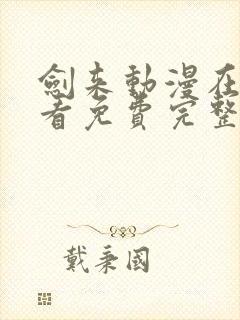 劍来動漫在
看免費完整
戴秉國